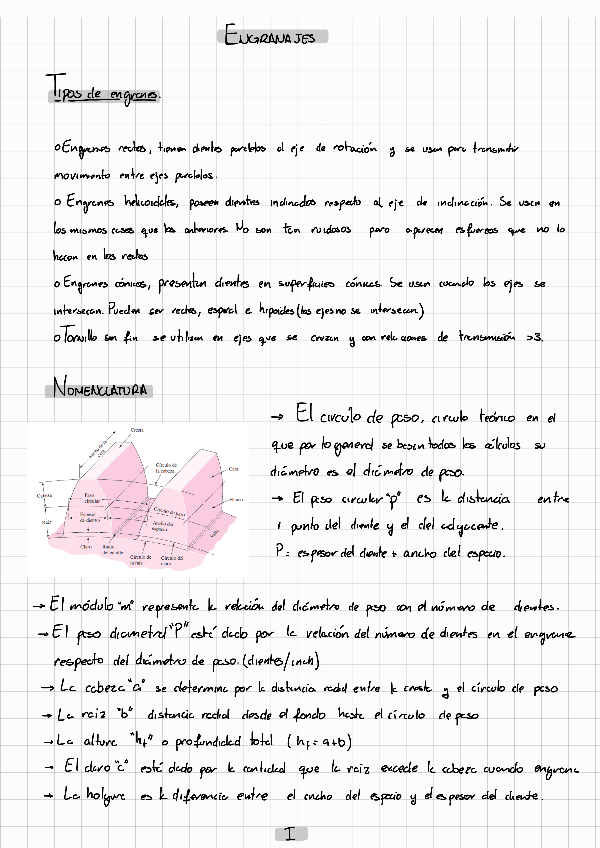 ENGRANAJES
Tipos de engranes.
o Engranes rectos, tienen dientes paralelos al eje de rotación y se usan para transmitir
movimiento entre ejes paralelos.
o Engranes helicoidales, poseen dientes inclinados respecto al eje de inclinación. Se usan en
los mismos casos que los anteriores. No son tan ruidosos pero aparecen esfuerzos que no lo
hacen en los rectos
o Engranes cónicos, presentan dientes en superficies cónicas. Se usan cuando los ejes se
intersecan. Pueden ser rectos, espiral e hipoides (los ejes no se intersecan)
o Tornillo sin fin se utilizan en ejes que se cruzan y con relaciones de transmisión >3.
NOMENCLATURA
→ El circulo de paso, circulo teórico en el
que por lo general se basan todos los cálculos su
diámetro es el diámetro de paso.
→ El paso circular "p" es la distancia entre
1 punto del diente y el del adyacente.
P = espesor del diente + ancho del espacio.
Cresta
Ancho de la
cara
Círculo de
la cabeza
Cara
Cabeza
Paso
circular
Flanco
Raíz
Espesor
de diente
Círculo de paso
Ancho del
espacio
Claro
Radio
del entalle
Círculo de
la raíz
Círculo del
claro
→ El módulo "m" representa la relación del diámetro de paso con el número de dientes.
→ El paso diametral "P" esté dado por la relación del número de dientes en el engrane
respecto del diámetro de paso. (dientes/inch)
→ La cabeza "a" se determina por la distancia radial entre la cresta y el círculo de paso
→ La raiz "b" distancia radial desde el fondo hasta el círculo de paso
→ La altura "ht" o profundidad total (ht = a+b)
→ El claro "c" está dado por la cantidad que la raiz excede la cabeza cuando engrana
→ La holgura es la diferencia entre el ancho del espacio y el espesor del diente.
I